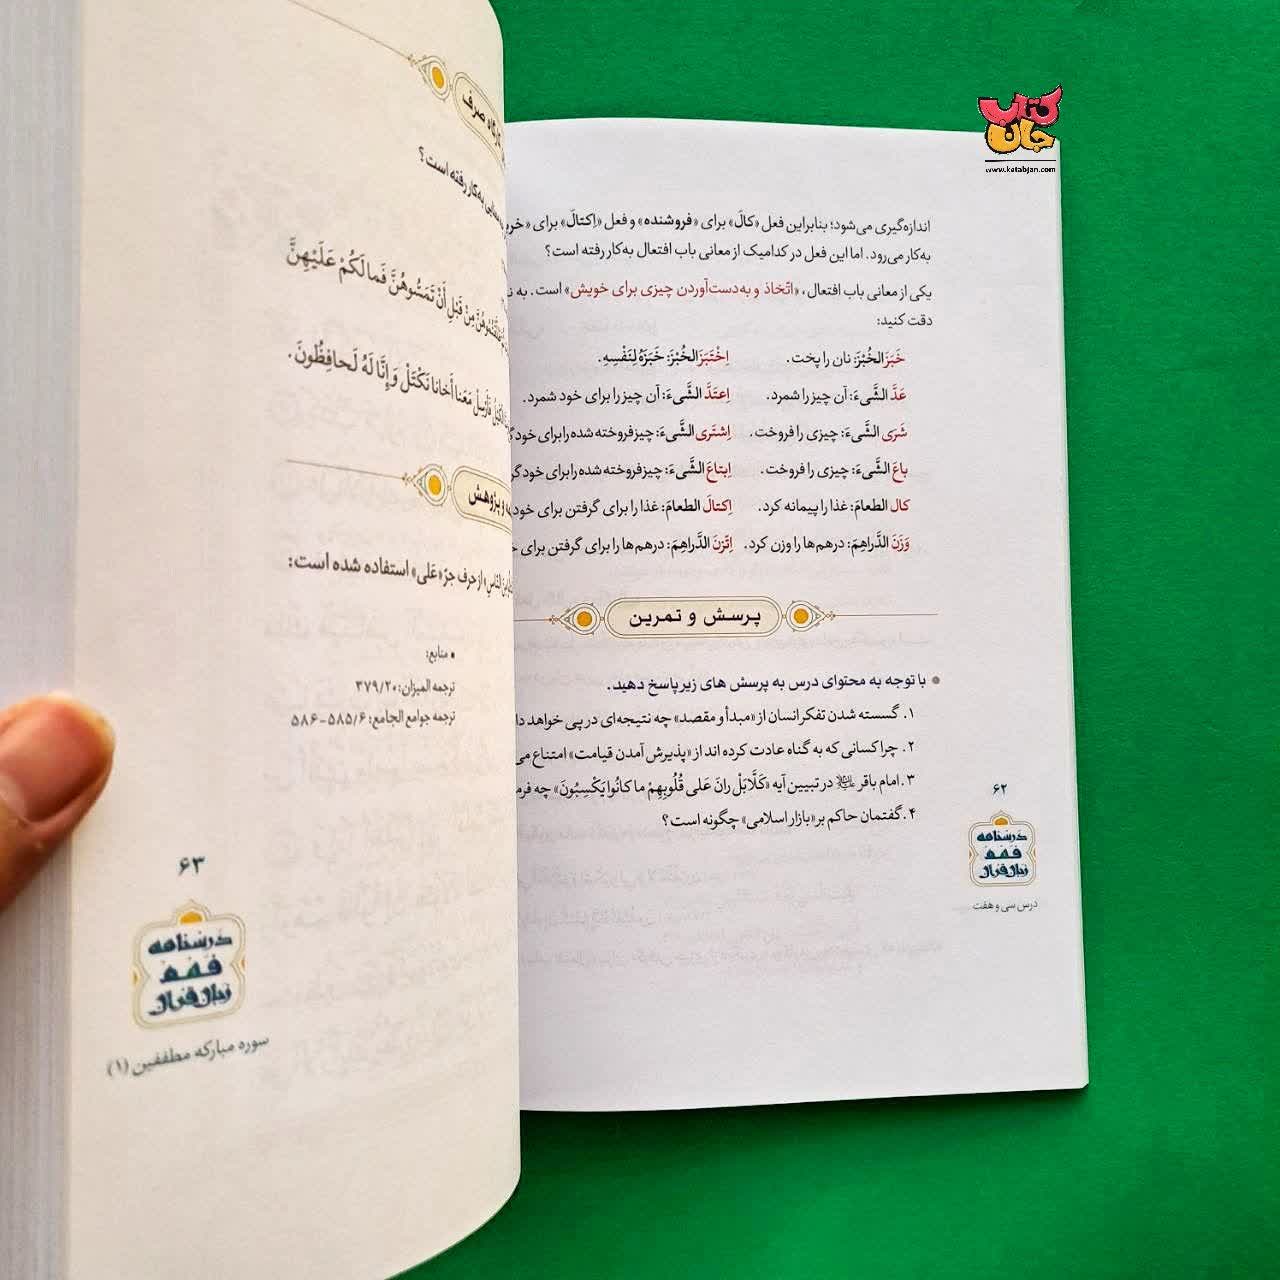 کتاب
جان
www.ketabjan.com
اندازه‌گیری می‌شود؛ بنابراین فعل «کالَ» برای «فروشنده» و فعل «اِکتالَ» برای
به‌کار می‌رود. اما این فعل در کدامیک از معانی باب افتعال به‌کار رفته است؟
یکی از معانی باب افتعال، «اتّخاذ و به‌دست‌آوردن چیزی برای خویش» است. به
دقت کنید:
خَبَزَ الخُبْزَ: نان را پخت. اِخْتَبَزَ الخُبْزَ: خَبَزَهُ لِنَفْسِهِ.
عَدَّ الشَّیءَ: آن چیز را شمرد. اِعتَدَّ الشَّیءَ: آن چیز را برای خود شمرد.
شَرَی الشَّیءَ: چیزی را فروخت. اِشتَری الشَّیءَ: چیز فروخته شده را برای خود
باعَ الشَّیءَ: چیزی را فروخت. اِبتاعَ الشَّیءَ: چیز فروخته شده را برای خود
کال الطعامَ: غذا را پیمانه کرد. اِکتالَ الطعامَ: غذا را برای گرفتن برای خود
وَزَنَ الدَّراهِمَ: درهم‌ها را وزن کرد. اِتَّزنَ الدَّراهِمَ: درهم‌ها را برای گرفتن برای
پرسش و تمرین
● با توجه به محتوای درس به پرسش های زیر پاسخ دهید.
۱. گسسته شدن تفکر انسان از «مبدأ و مقصد» چه نتیجه‌ای در پی خواهد
۲. چرا کسانی که به گناه عادت کرده اند از «پذیرش آمدن قیامت» امتناع
۳. امام باقر در تبیین آیه «کَلَّا بَلْ رانَ عَلی قُلُوبِهِمْ ما کانُوا یَکْسِبُونَ» چه
۴. گفتمان حاکم بر «بازار اسلامی» چگونه است؟
۶۲
درسنامه
فهم
زبان قرآن
درس سی و هفت
صرف
به‌کار رفته است؟
مِنْ قَبْلِ أَنْ تَمَسُّوهُنَّ فَما لَکُمْ عَلَیْهِنَّ
فَأَرْسِلْ مَعَنا أَخانا نَکْتَلْ وَ إِنَّا لَهُ لَحافِظُونَ.
و پژوهش
از حرف جرّ «عَلی» استفاده شده است:
• منابع:
ترجمه المیزان: ۳۷۹/۲۰
ترجمه جوامع الجامع: ۵۸۵/۶-۵۸۶
۶۳
درسنامه
فهم
زبان قرآن
سوره مبارکه مطففین (۱)